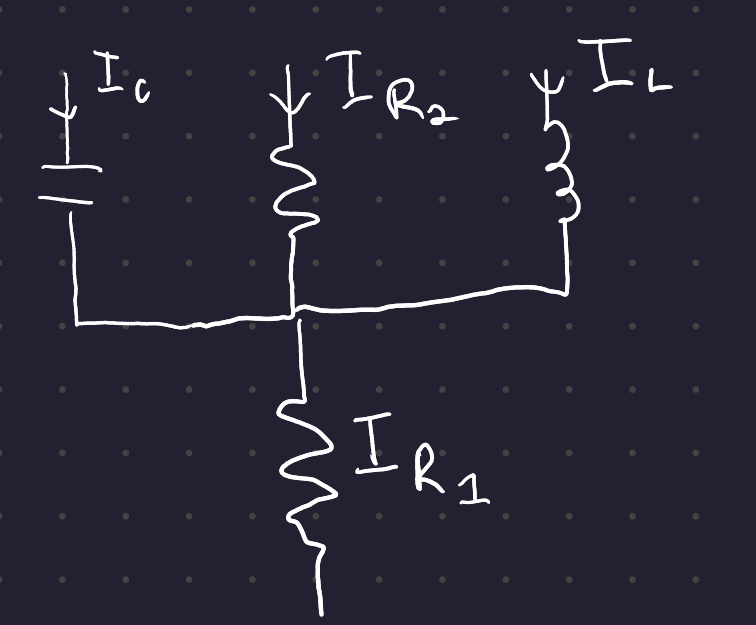 I_C
I_R_2
I_L
I_R_1